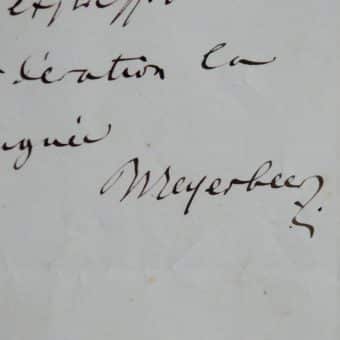 dération la
guée
Meyerbeer